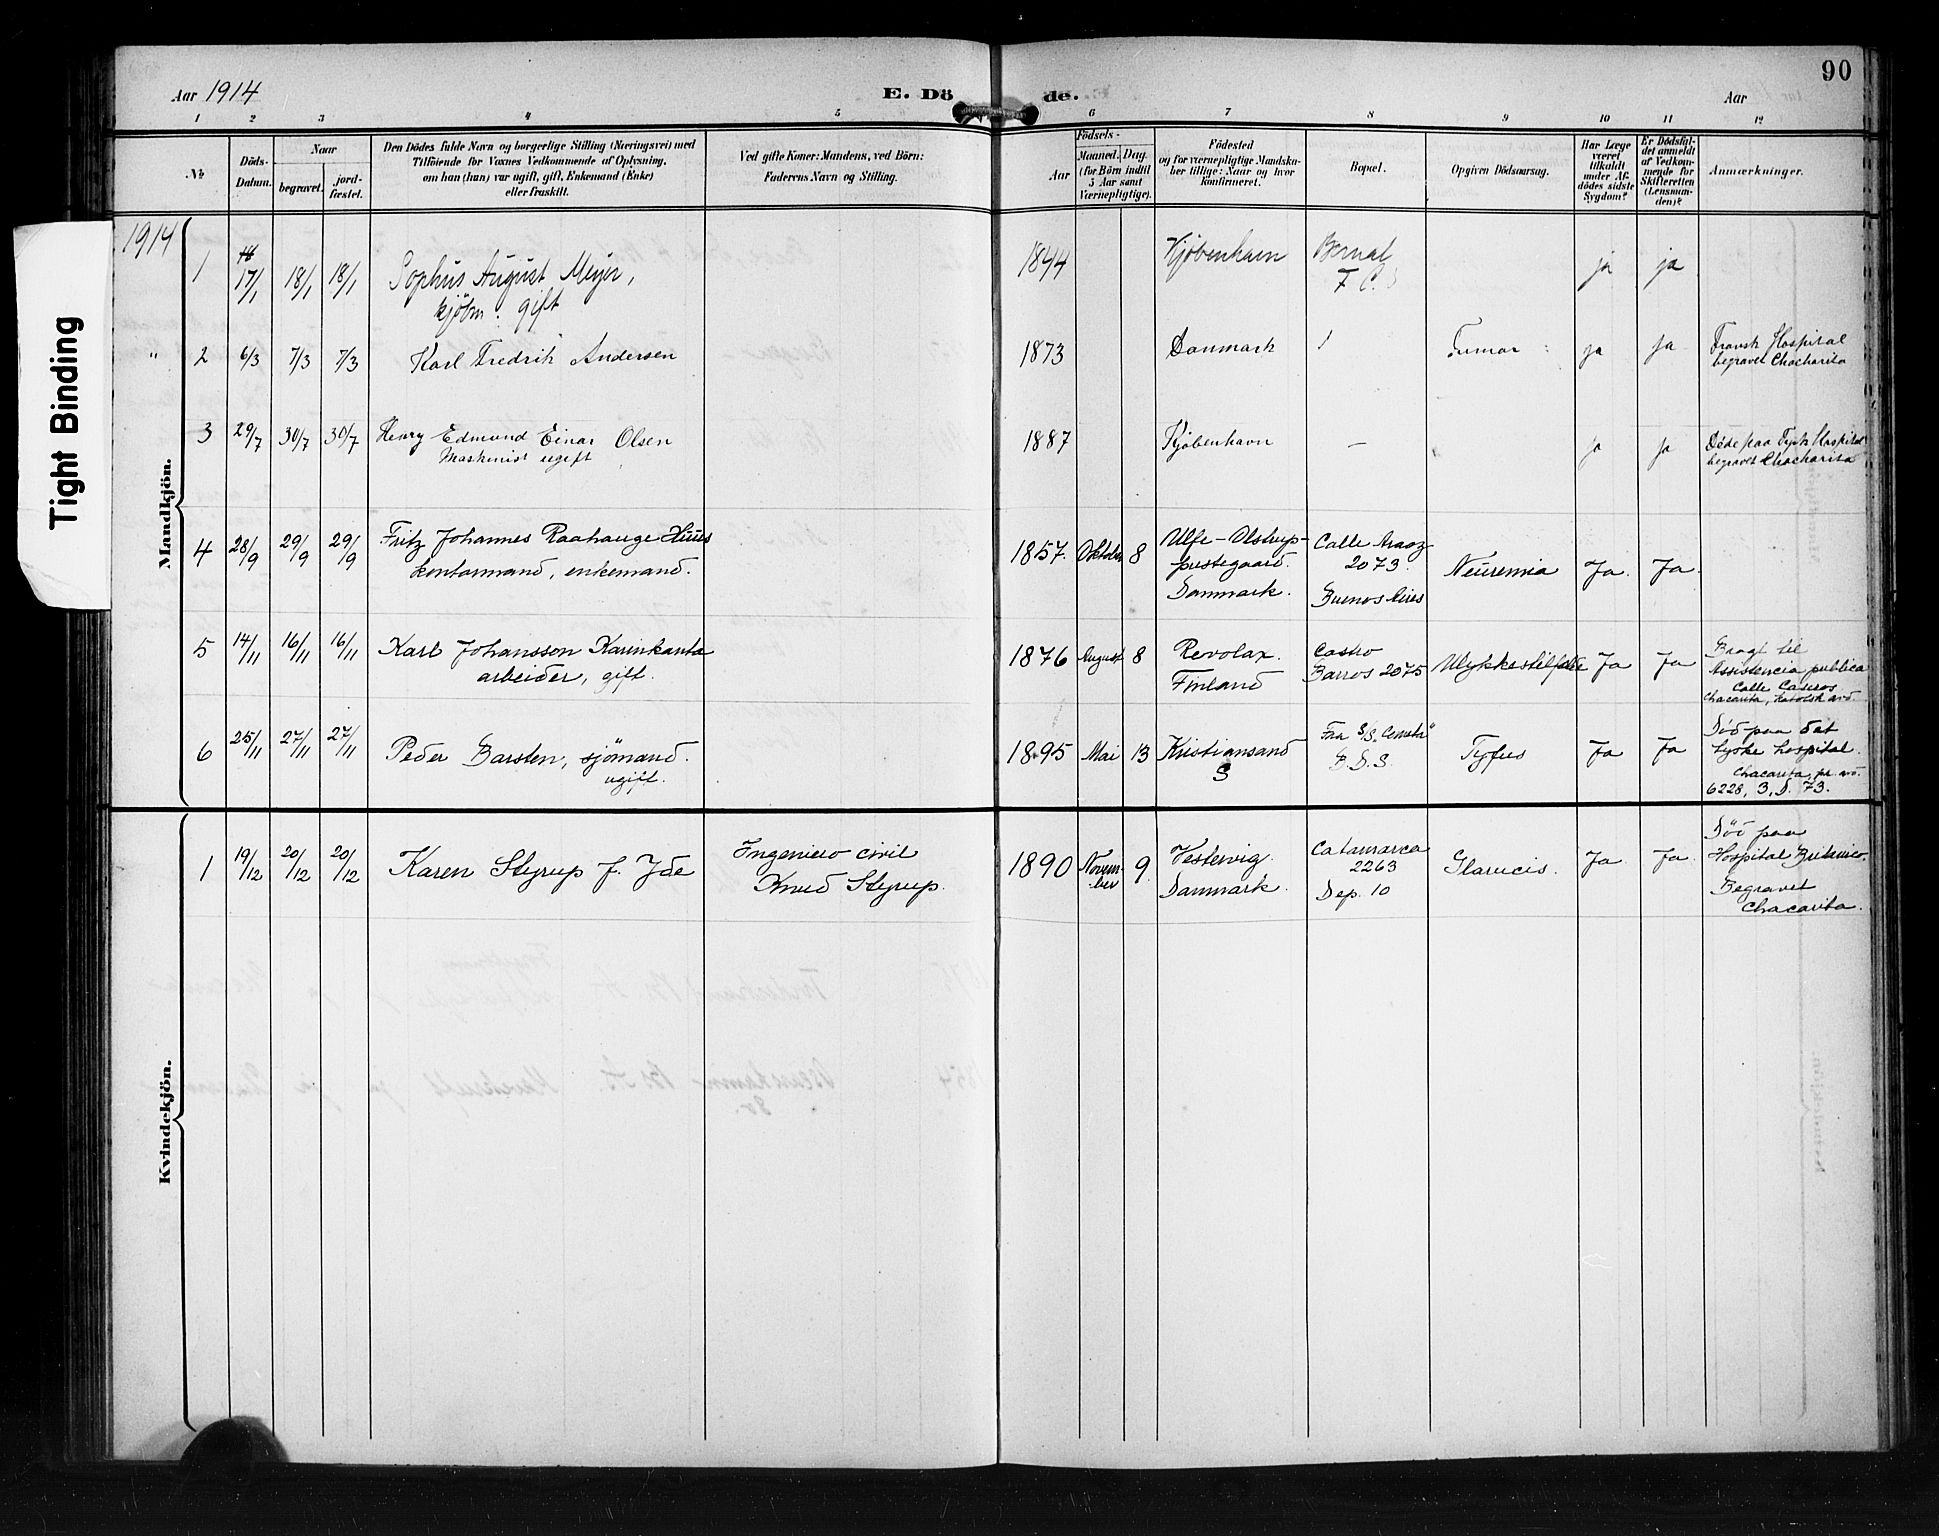 Aar 1914
E. Dö
de.
Aar
90
1 2 3 4 5 6 7 8 9 10 11 12
№
Döds-
Datum.
Naar
begravet.
jord-
fæstet.
Den Dödes fulde Navn og borgerlige Stilling (Næringsvei) med
Tilföiende for Voxnes Vedkommende af Oplysning,
om han (hun) var ugift, gift, Enkemand (Enke)
eller fraskilt.
Ved gifte Koner: Mandens, ved Börn:
Faderens Navn og Stilling.
Födsels-
Aar
Maaned.
Dag.
(for Börn indtil
5 Aar samt
Værnepligtige).
Födested
og for værnepligtige Mandska-
ber tillige: Naar og hvor
Konfirmeret.
Bopæl.
Opgiven Dödsaarsag.
Har Læge
været
tilkaldt
under Af-
dödes sidste
Sygdom?
Er Dödsfal-
det anmeldt
af Vedkom-
mende for
Skifteretten
(Lensman-
den)?
Anmærkninger.
Tight Binding
Mandkjön.
1914
1 17/1 18/1 18/1 Sophus August Meyer, 1844 Kjöbenhavn Bernal ja ja
kjöbm: gift F C.S
" 2 6/3 7/3 7/3 Karl Fredrik Andersen 1873 Danmark Tumor ja ja Fransk Hospital
begravet Chacharita
3 29/7 30/7 30/7 Henry Edmund Einar Olsen 1887 Kjöbenhavn — ja ja Döde paa Tysk Hospital
Maskinist ugift begravet Chacharita
4 28/9 29/9 29/9 Fritz Johannes Raahauge Huus 1857. Oktober 8 Ulfe-Olstrup- Calle Araoz
kontormand, enkemand. prestegaard. 2073. Ja. Ja.
Danmark. Buenos Aires
5 14/11 16/11 16/11 Karl Johansson Karinkanta 1876 August 8 Revolax. Castro Ulykkestilfælde Ja Ja Bragt til
arbeider, gift. Finland Barros 2075 Assistencia publica
Calle Caseros
Chacarita,
6 25/11 27/11 27/11 Peder Barsten, sjömand. 1895 Mai 13 Kristiansand Fra S/S. B.D.S. Tyfus Ja Ja Död paa det
ugift. S tyske hospital.
Chacarita,
6228, 3, D. 73.
Kvindekjön.
1 19/12 20/12 20/12 Karen Styrup f. Yde Ingeniero civil 1890 Novem- 9. Vestervig. Catamarca Ja Ja Död paa
Knud Styrup. ber Danmark. 2263 Hospital Britanico.
Dep. 10 Begravet
Chacarita.